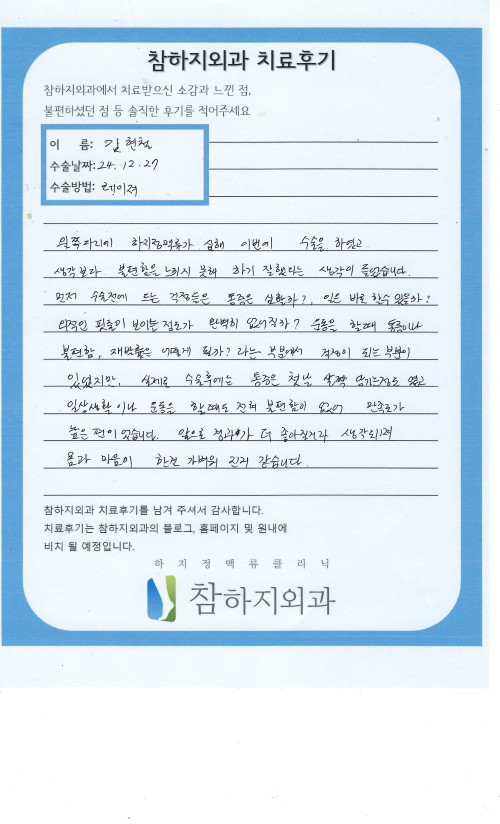 참하지외과 치료후기
참하지외과에서 치료받으신 소감과 느낀 점,
불편하셨던 점 등 솔직한 후기를 적어주세요
이 름: 김현철
수술날짜: 24. 12. 27
수술방법: 레이저
왼쪽다리에 하지정맥류가 심해 이번에 수술을 하였고
생각보다 불편함을 느끼지 못해 하기 잘했다는 생각이 들었습니다.
먼저 수술전에 드는 걱정들은 통증은 심할까?, 일은 바로 할수 있을까?
외적인 핏줄이 보이는 정도가 완벽히 없어질까? 운동을 할때 통증이나
불편함, 재발률은 어떻게 될까? 라는 부분에서 걱정이 되는 부분이
있었지만, 실제로 수술후에는 통증은 첫날 살짝 당기는정도 였고
일상생활이나 운동을 할때도 전혀 불편함이 없어 만족도가
높은 편이었습니다. 앞으로 경과가 더 좋아질거라 생각되며
몸과 마음이 한결 가벼워 진거 같습니다.
참하지외과 치료후기를 남겨 주셔서 감사합니다.
치료후기는 참하지외과의 블로그, 홈페이지 및 원내에
비치 될 예정입니다.
하지정맥류클리닉
참하지외과